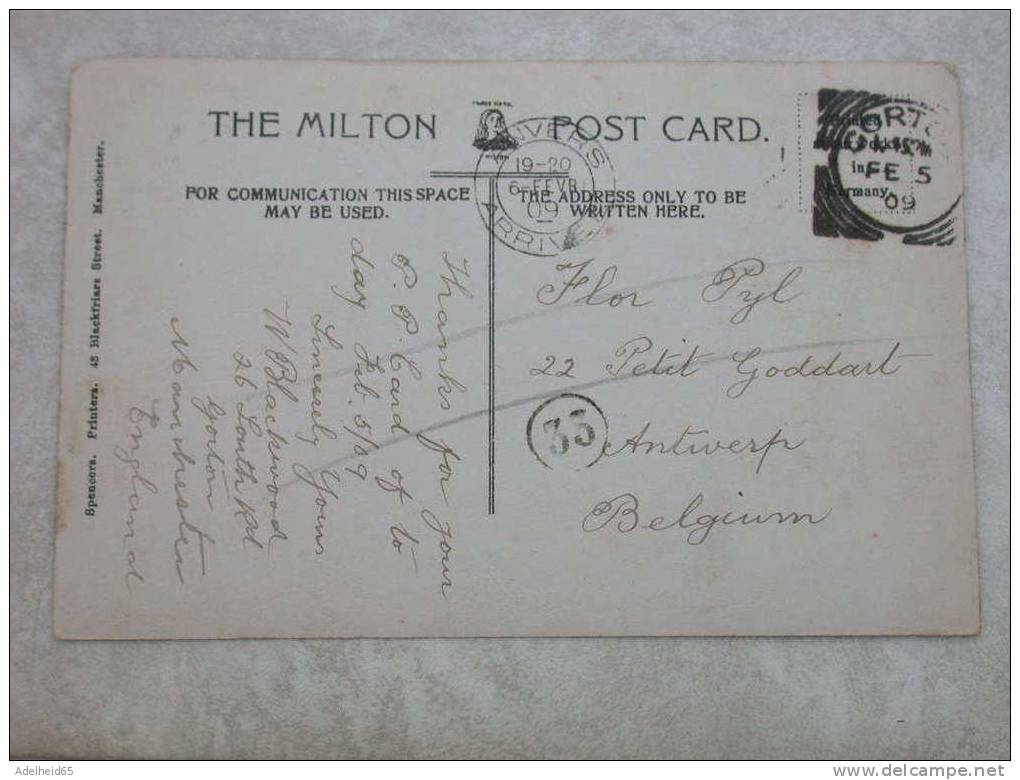 THE MILTON POST CARD.
TRADE MARK
MILTON
FOR COMMUNICATION THIS SPACE
MAY BE USED.
THE ADDRESS ONLY TO BE
WRITTEN HERE.
Spencers. Printers. 43 Blackfriars Street. Manchester.
ANVERS
19-20
6 FEVR
09
ARRIV
GORTO
FE 5
09
in
Germany
Thanks for your
P. P. Card of to
day Feb. 5/09
Sincerely Yours
W Blackwood
26 Louth Rd
Gorton
Manchester
England
Flor Pyl
22 Petit Goddart
Antwerp
Belgium
33
Adelheid65
www.delcampe.net